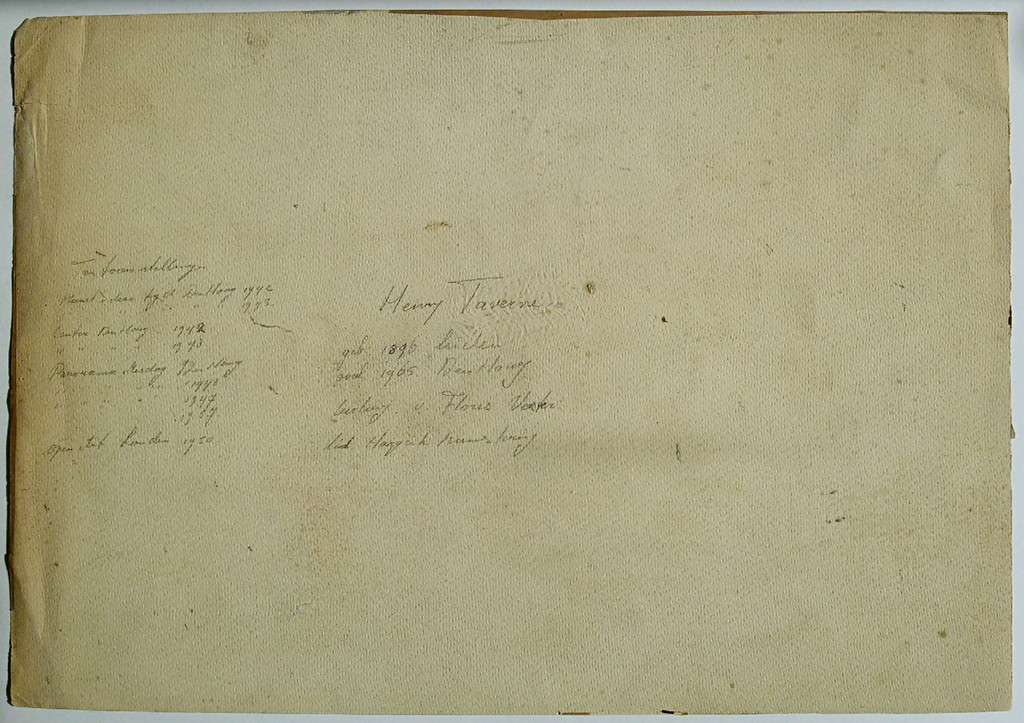 Tentoonstelling.
Kunst Den Haag 1942
" " 1943.
Center Den Haag 1942
" " " " 1943
Panorama Mesdag Den Haag
" " " 1943
" " " 1947
1957
London 1950
Henry Taverne
geb. 1896 Leiden
1965. Den Haag
leerling v. Floris Verster
lid Haagsch Kunstkring